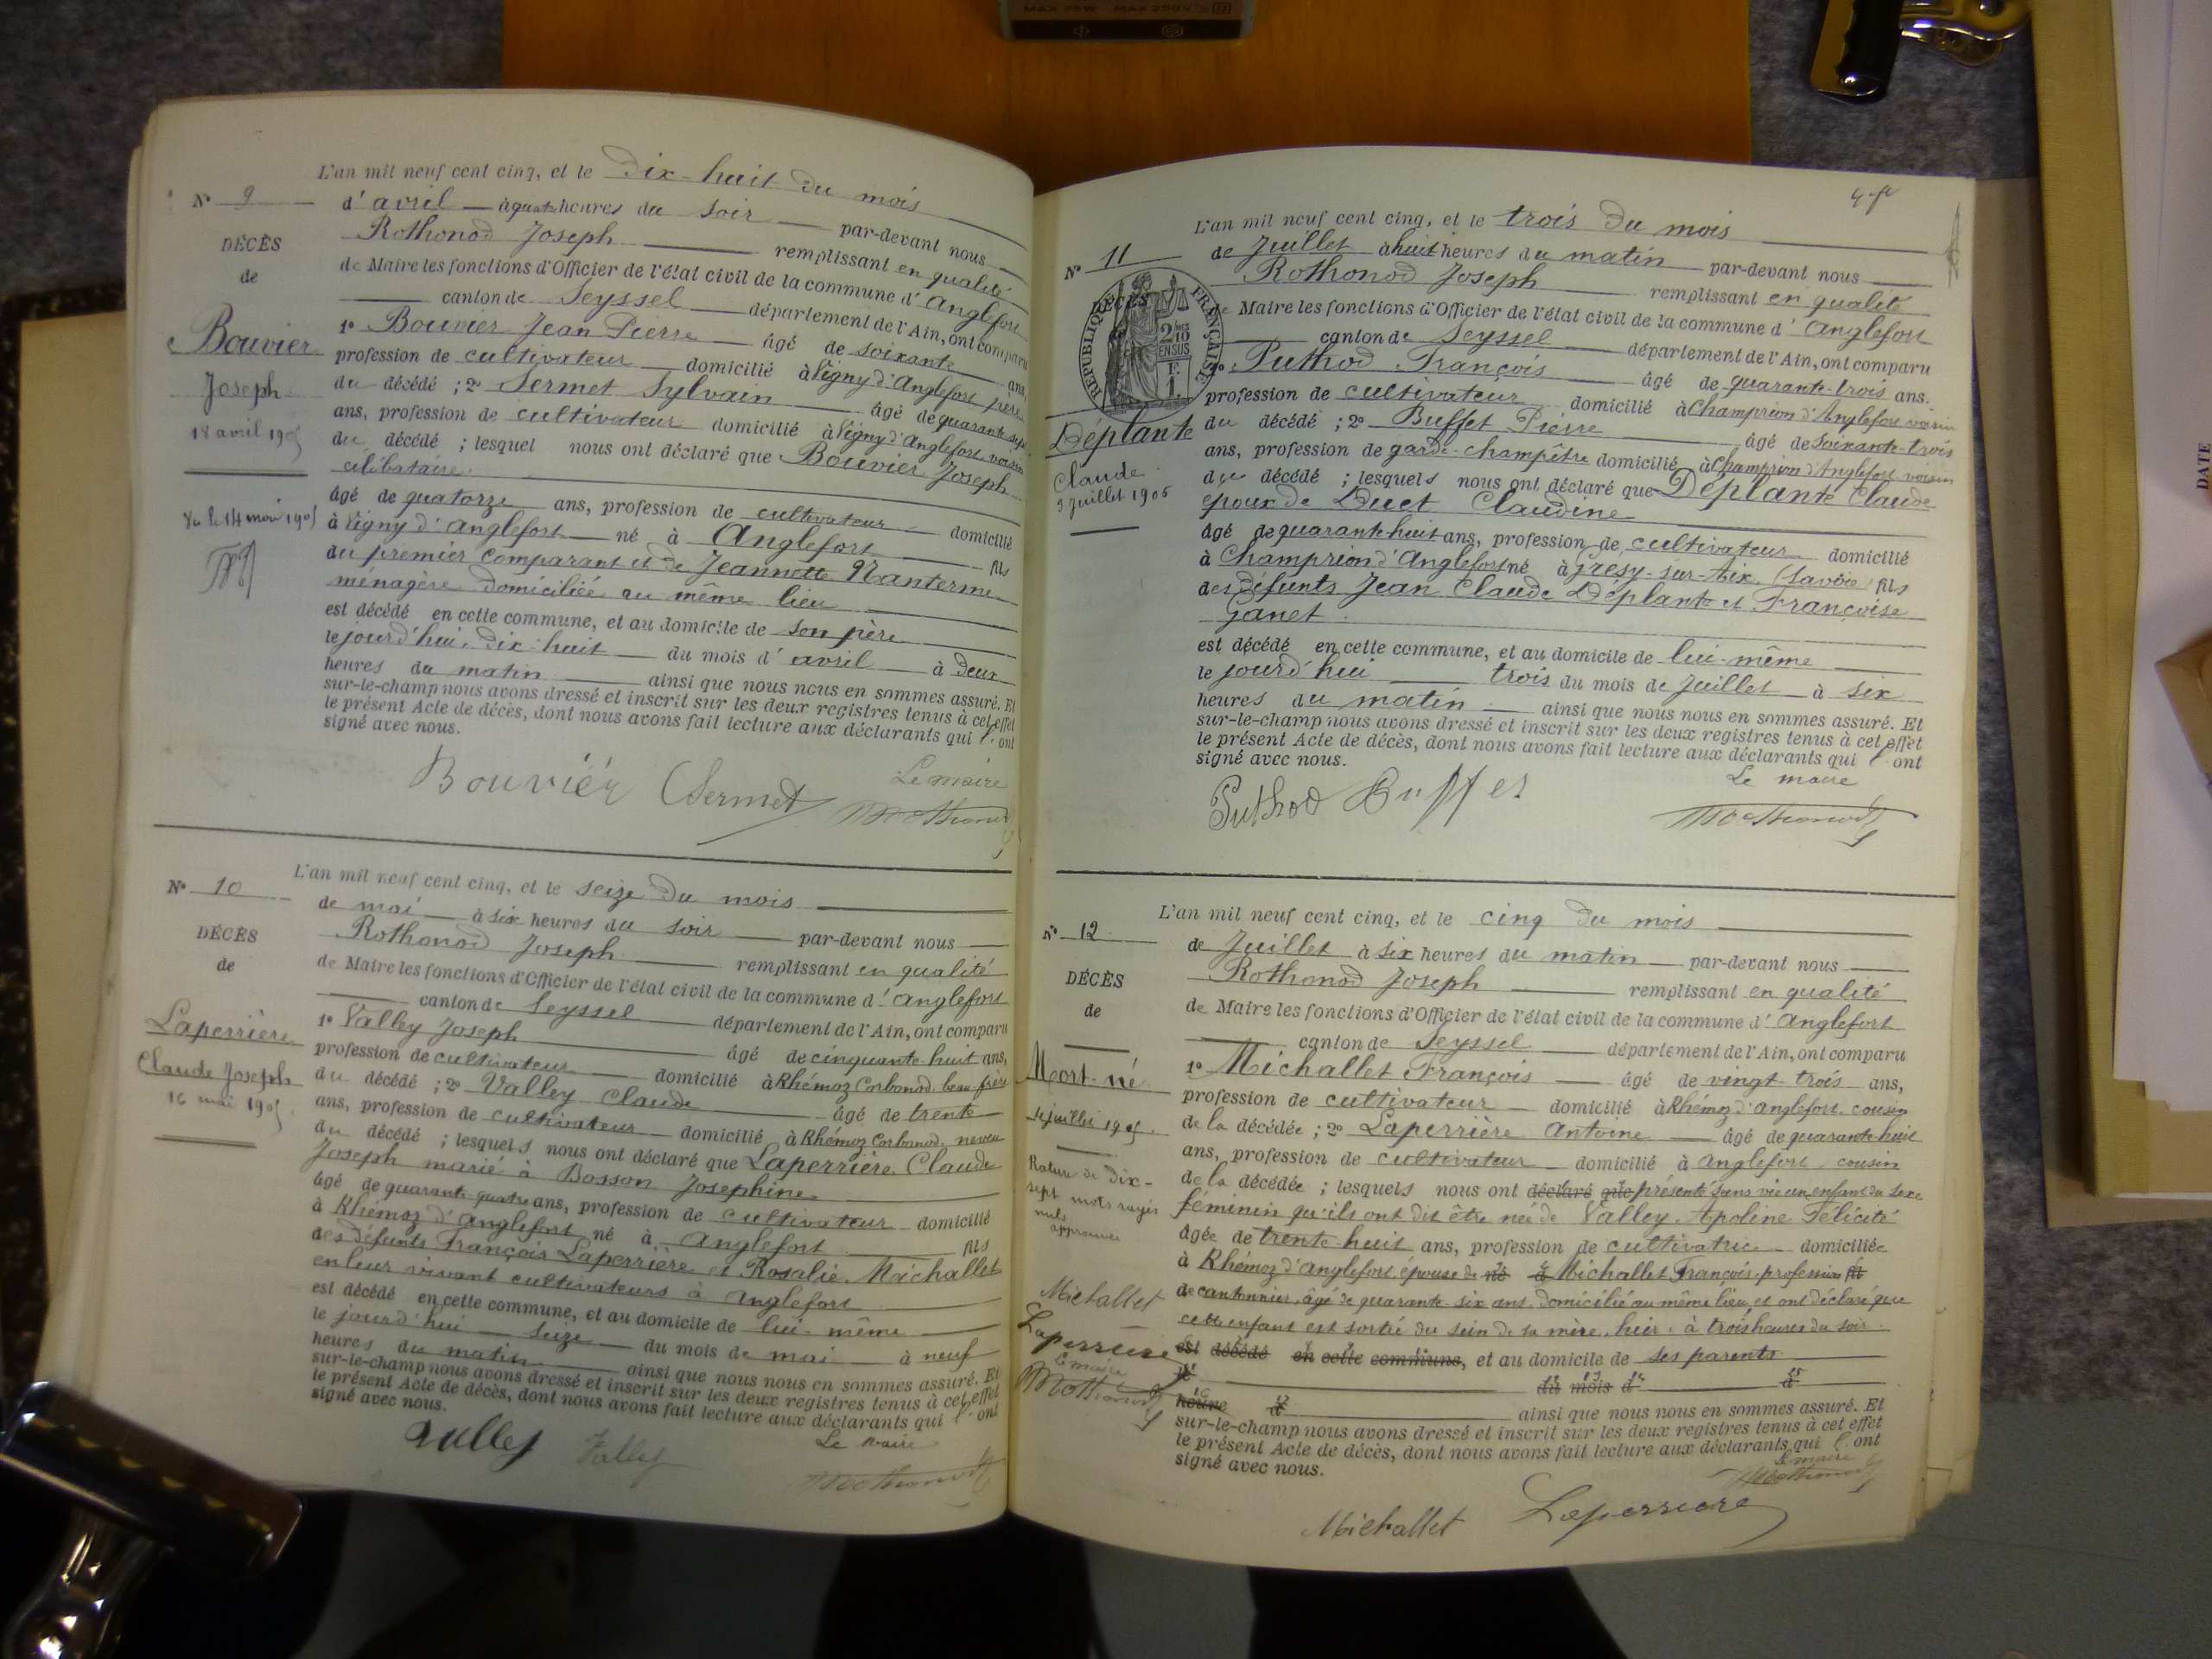 MAX 75W MAX 250V
L'an mil neuf cent cinq, et le dix-huit du mois
N° 9
d'avril à quatre heures du soir par-devant nous
Rothonod Joseph remplissant en qualité
DÉCÈS
de Maire les fonctions d'Officier de l'état civil de la commune d'Anglefort
de
canton de Seyssel département de l'Ain, ont comparu
1° Bouvier Jean Pierre âgé de soixante ans,
Bouvier
profession de cultivateur domicilié à Vigny d'Anglefort père
Joseph
du décédé ; 2° Sermet Sylvain âgé de quarante sept
18 avril 1905
ans, profession de cultivateur domicilié à Vigny d'Anglefort voisin
du décédé ; lesquel nous ont déclaré que Bouvier Joseph
célibataire
âgé de quatorze ans, profession de cultivateur domicilié
Vu le 14 mai 1905
à Vigny d'Anglefort né à Anglefort fils
du premier comparant et de Jeannette Nanterme
ménagère domiciliée au même lieu
est décédé en cette commune, et au domicile de son père
le jourd'hui, dix-huit du mois d'avril à deux
heures du matin ainsi que nous nous en sommes assuré. Et
sur-le-champ nous avons dressé et inscrit sur les deux registres tenus à cet effet
le présent Acte de décès, dont nous avons fait lecture aux déclarants qui l'ont
signé avec nous.
Le maire
Bouvier Sermet Rothonod
L'an mil neuf cent cinq, et le seize du mois
N° 10
de mai à six heures du soir par-devant nous
Rothonod Joseph remplissant en qualité
DÉCÈS
de Maire les fonctions d'Officier de l'état civil de la commune d'Anglefort
de
canton de Seyssel département de l'Ain, ont comparu
1° Valley Joseph âgé de cinquante huit ans,
Laperrière
profession de cultivateur domicilié à Rhémoz Corbonod beau-frère
Claude Joseph
du décédé ; 2° Valley Claude âgé de trente
16 mai 1905
ans, profession de cultivateur domicilié à Rhémoz Corbonod neveu
du décédé ; lesquels nous ont déclaré que Laperrière Claude
Joseph marié à Bosson Josephine
âgé de quarante-quatre ans, profession de cultivateur domicilié
à Rhémoz d'Anglefort né à Anglefort fils
des défunts François Laperrière et Rosalie Michallet
en leur vivant cultivateurs à Anglefort
est décédé en cette commune, et au domicile de lui-même
le jourd'hui seize du mois de mai à neuf
heures du matin ainsi que nous nous en sommes assuré. Et
sur-le-champ nous avons dressé et inscrit sur les deux registres tenus à cet effet
le présent Acte de décès, dont nous avons fait lecture aux déclarants qui l'ont
signé avec nous.
Le maire
Valley Valley Rothonod
L'an mil neuf cent cinq, et le trois du mois
N° 11
de Juillet à huit heures du matin par-devant nous
Rothonod Joseph remplissant en qualité
DÉCÈS
RÉPUBLIQUE FRANÇAISE
2/10 EN SUS
F. 1
de Maire les fonctions d'Officier de l'état civil de la commune d'Anglefort
canton de Seyssel département de l'Ain, ont comparu
1° Puthod François âgé de quarante-trois ans.
profession de cultivateur domicilié à Champrion d'Anglefort voisin
Déplante
du décédé ; 2° Buffet Pierre âgé de soixante-trois
Claude
ans, profession de garde-champêtre domicilié à Champrion d'Anglefort voisin
3 Juillet 1905
du décédé ; lesquels nous ont déclaré que Déplante Claude
époux de Ducet Claudine
âgé de quarante huit ans, profession de cultivateur domicilié
à Champrion d'Anglefort né à Grésy-sur-Aix (Savoie) fils
des défunts Jean Claude Déplante et Françoise
Ganet
est décédé en cette commune, et au domicile de lui-même
le jourd'hui trois du mois de Juillet à six
heures du matin ainsi que nous nous en sommes assuré. Et
sur-le-champ nous avons dressé et inscrit sur les deux registres tenus à cet effet
le présent Acte de décès, dont nous avons fait lecture aux déclarants qui l'ont
signé avec nous.
Le maire
Puthod Buffet Rothonod
L'an mil neuf cent cinq, et le cinq du mois
N° 12
de Juillet à six heures du matin par-devant nous
Rothonod Joseph remplissant en qualité
DÉCÈS
de Maire les fonctions d'Officier de l'état civil de la commune d'Anglefort
de
canton de Seyssel département de l'Ain, ont comparu
Mort-né
1° Michallet François âgé de vingt-trois ans,
profession de cultivateur domicilié à Rhémoz d'Anglefort cousin
4 juillet 1905
de la décédée ; 2° Laperrière Antoine âgé de quarante-huit
ans, profession de cultivateur domicilié à Anglefort cousin
Rature de dix-
sept mots rayés
nuls
approuvée
de la décédée ; lesquels nous ont déclaré que présenté sans vie un enfant du sexe
féminin qu'ils ont dit être née de Valley Apoline Félicité
âgée de trente-huit ans, profession de cultivatrice domiciliée
à Rhémoz d'Anglefort épouse de né à Michallet François profession fil
de cantonnier, âgé de quarante-six ans, domicilié au même lieu, et ont déclaré que
Michallet
cette enfant est sortie du sein de sa mère, hier, à trois heures du soir
Laperrière
est décédé en cette commune, et au domicile de ses parents
Le maire
Rothonod
le du mois d à
heure d ainsi que nous nous en sommes assuré. Et
sur-le-champ nous avons dressé et inscrit sur les deux registres tenus à cet effet
le présent Acte de décès, dont nous avons fait lecture aux déclarants qui l'ont
signé avec nous.
Le maire
Rothonod
Michallet Laperrière
DATE